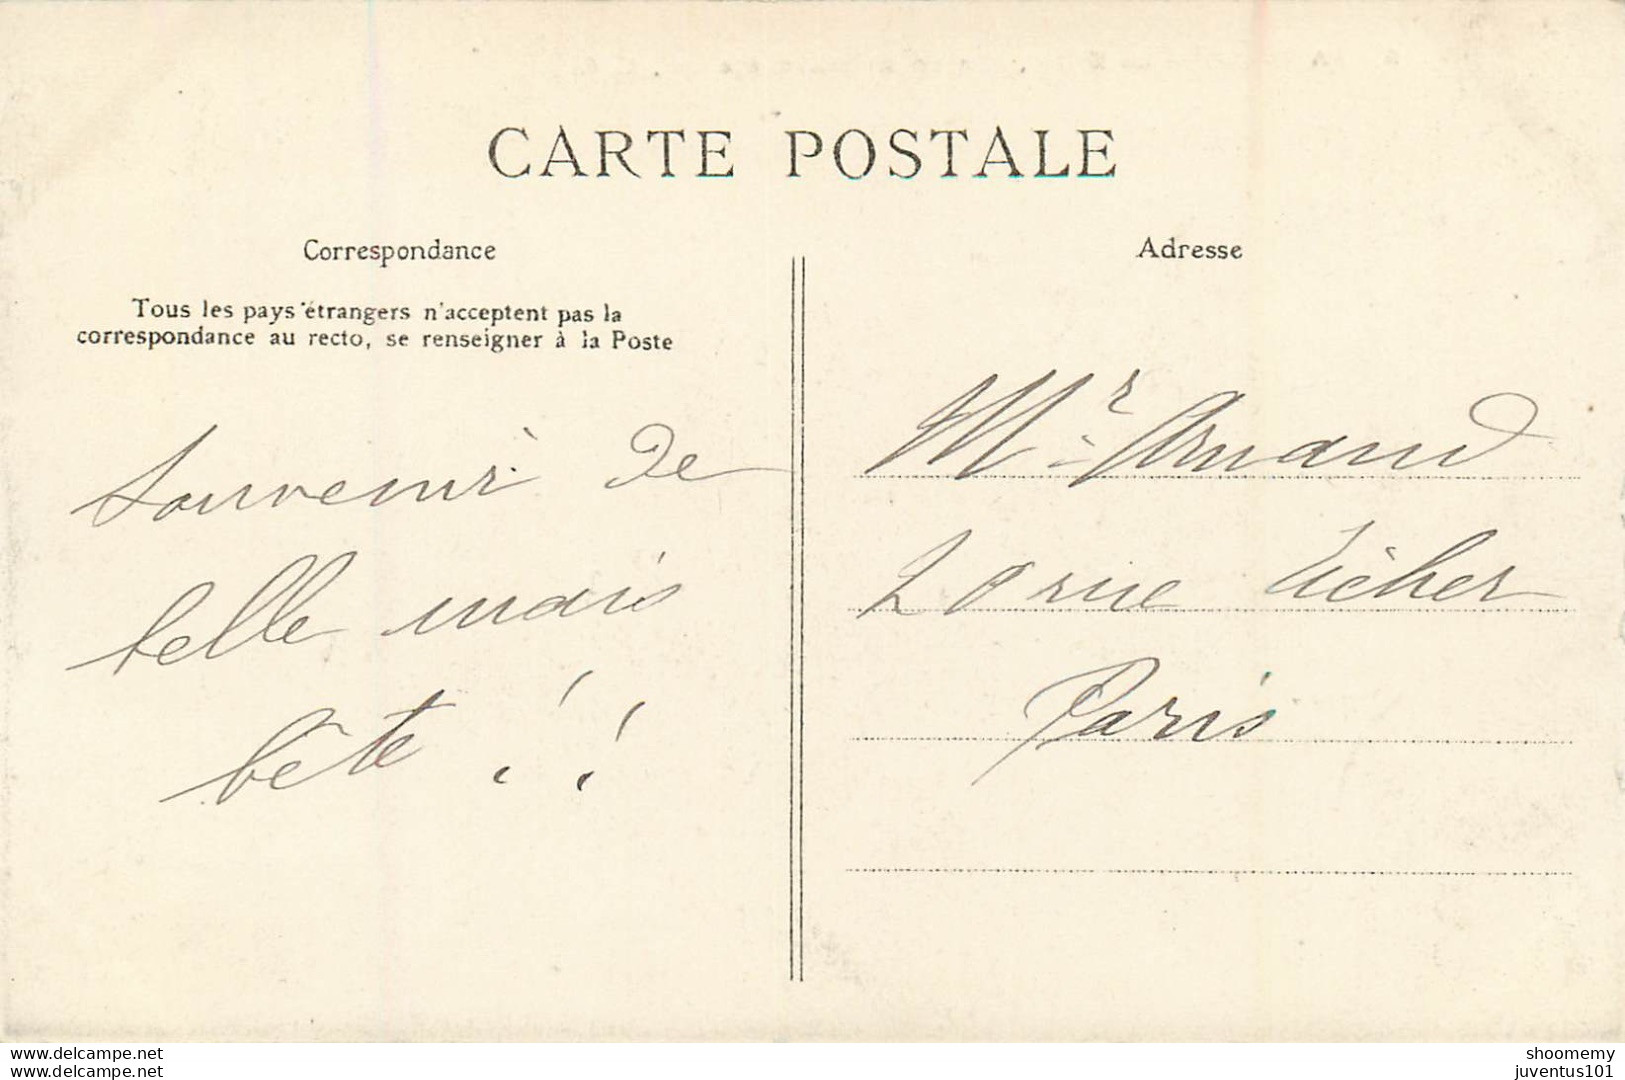 CARTE POSTALE
Correspondance
Tous les pays étrangers n'acceptent pas la
correspondance au recto, se renseigner à la Poste
Souvenir de
belle mais
bête !!
Adresse
Mr Arnaud
20 rue
Paris
www.delcampe.net
www.delcampe.net
shoomemy
juventus101